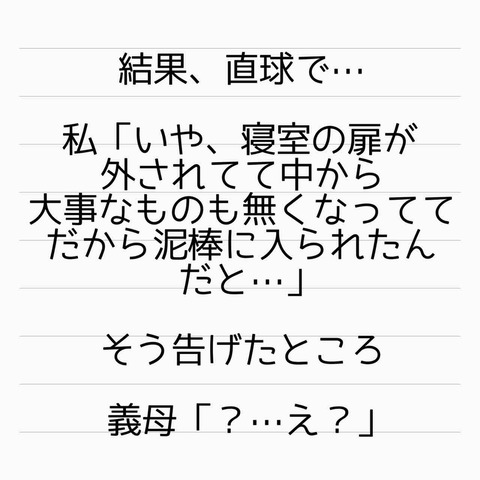 結果、直球で…
私「いや、寝室の扉が
外されてて中から
大事なものも無くなってて
だから泥棒に入られたん
だと…」
そう告げたところ
義母「？…え？」